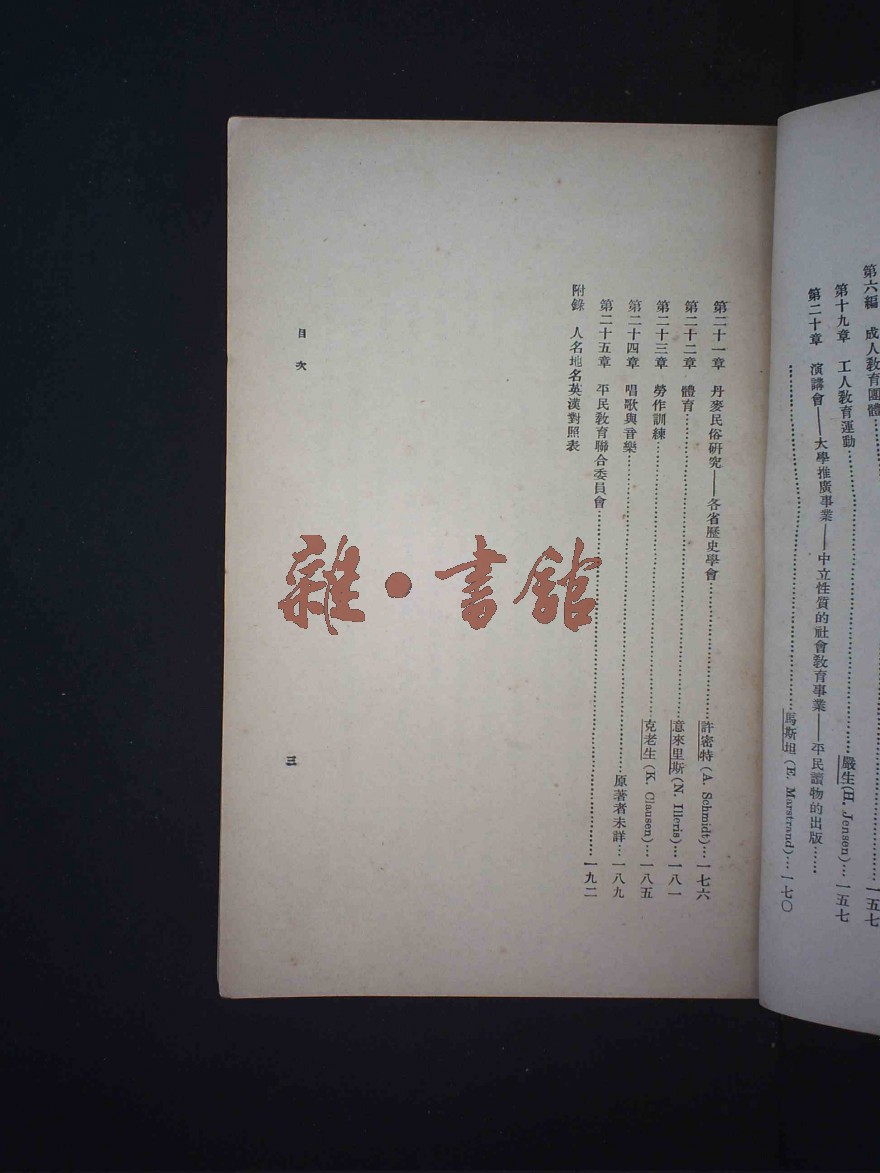 第六編　成人教育團體………一五七
第十九章　工人教育運動………嚴生(H. Jensen)…一五七
第二十章　演講會——大學推廣事業——中立性質的社會教育事業——平民讀物的出版……
………馬斯坦(E. Marstrand)…一七〇
第二十一章　丹麥民俗研究——各省歷史學會………許密特(A. Schmidt)…一七六
第二十二章　體育………意來里斯(N. Illeris)…一八一
第二十三章　勞作訓練………克老生(K. Clausen)…一八五
第二十四章　唱歌與音樂………原著者未詳…一八九
第二十五章　平民教育聯合委員會………一九二
附錄　人名地名英漢對照表
目次
三
雜·書館